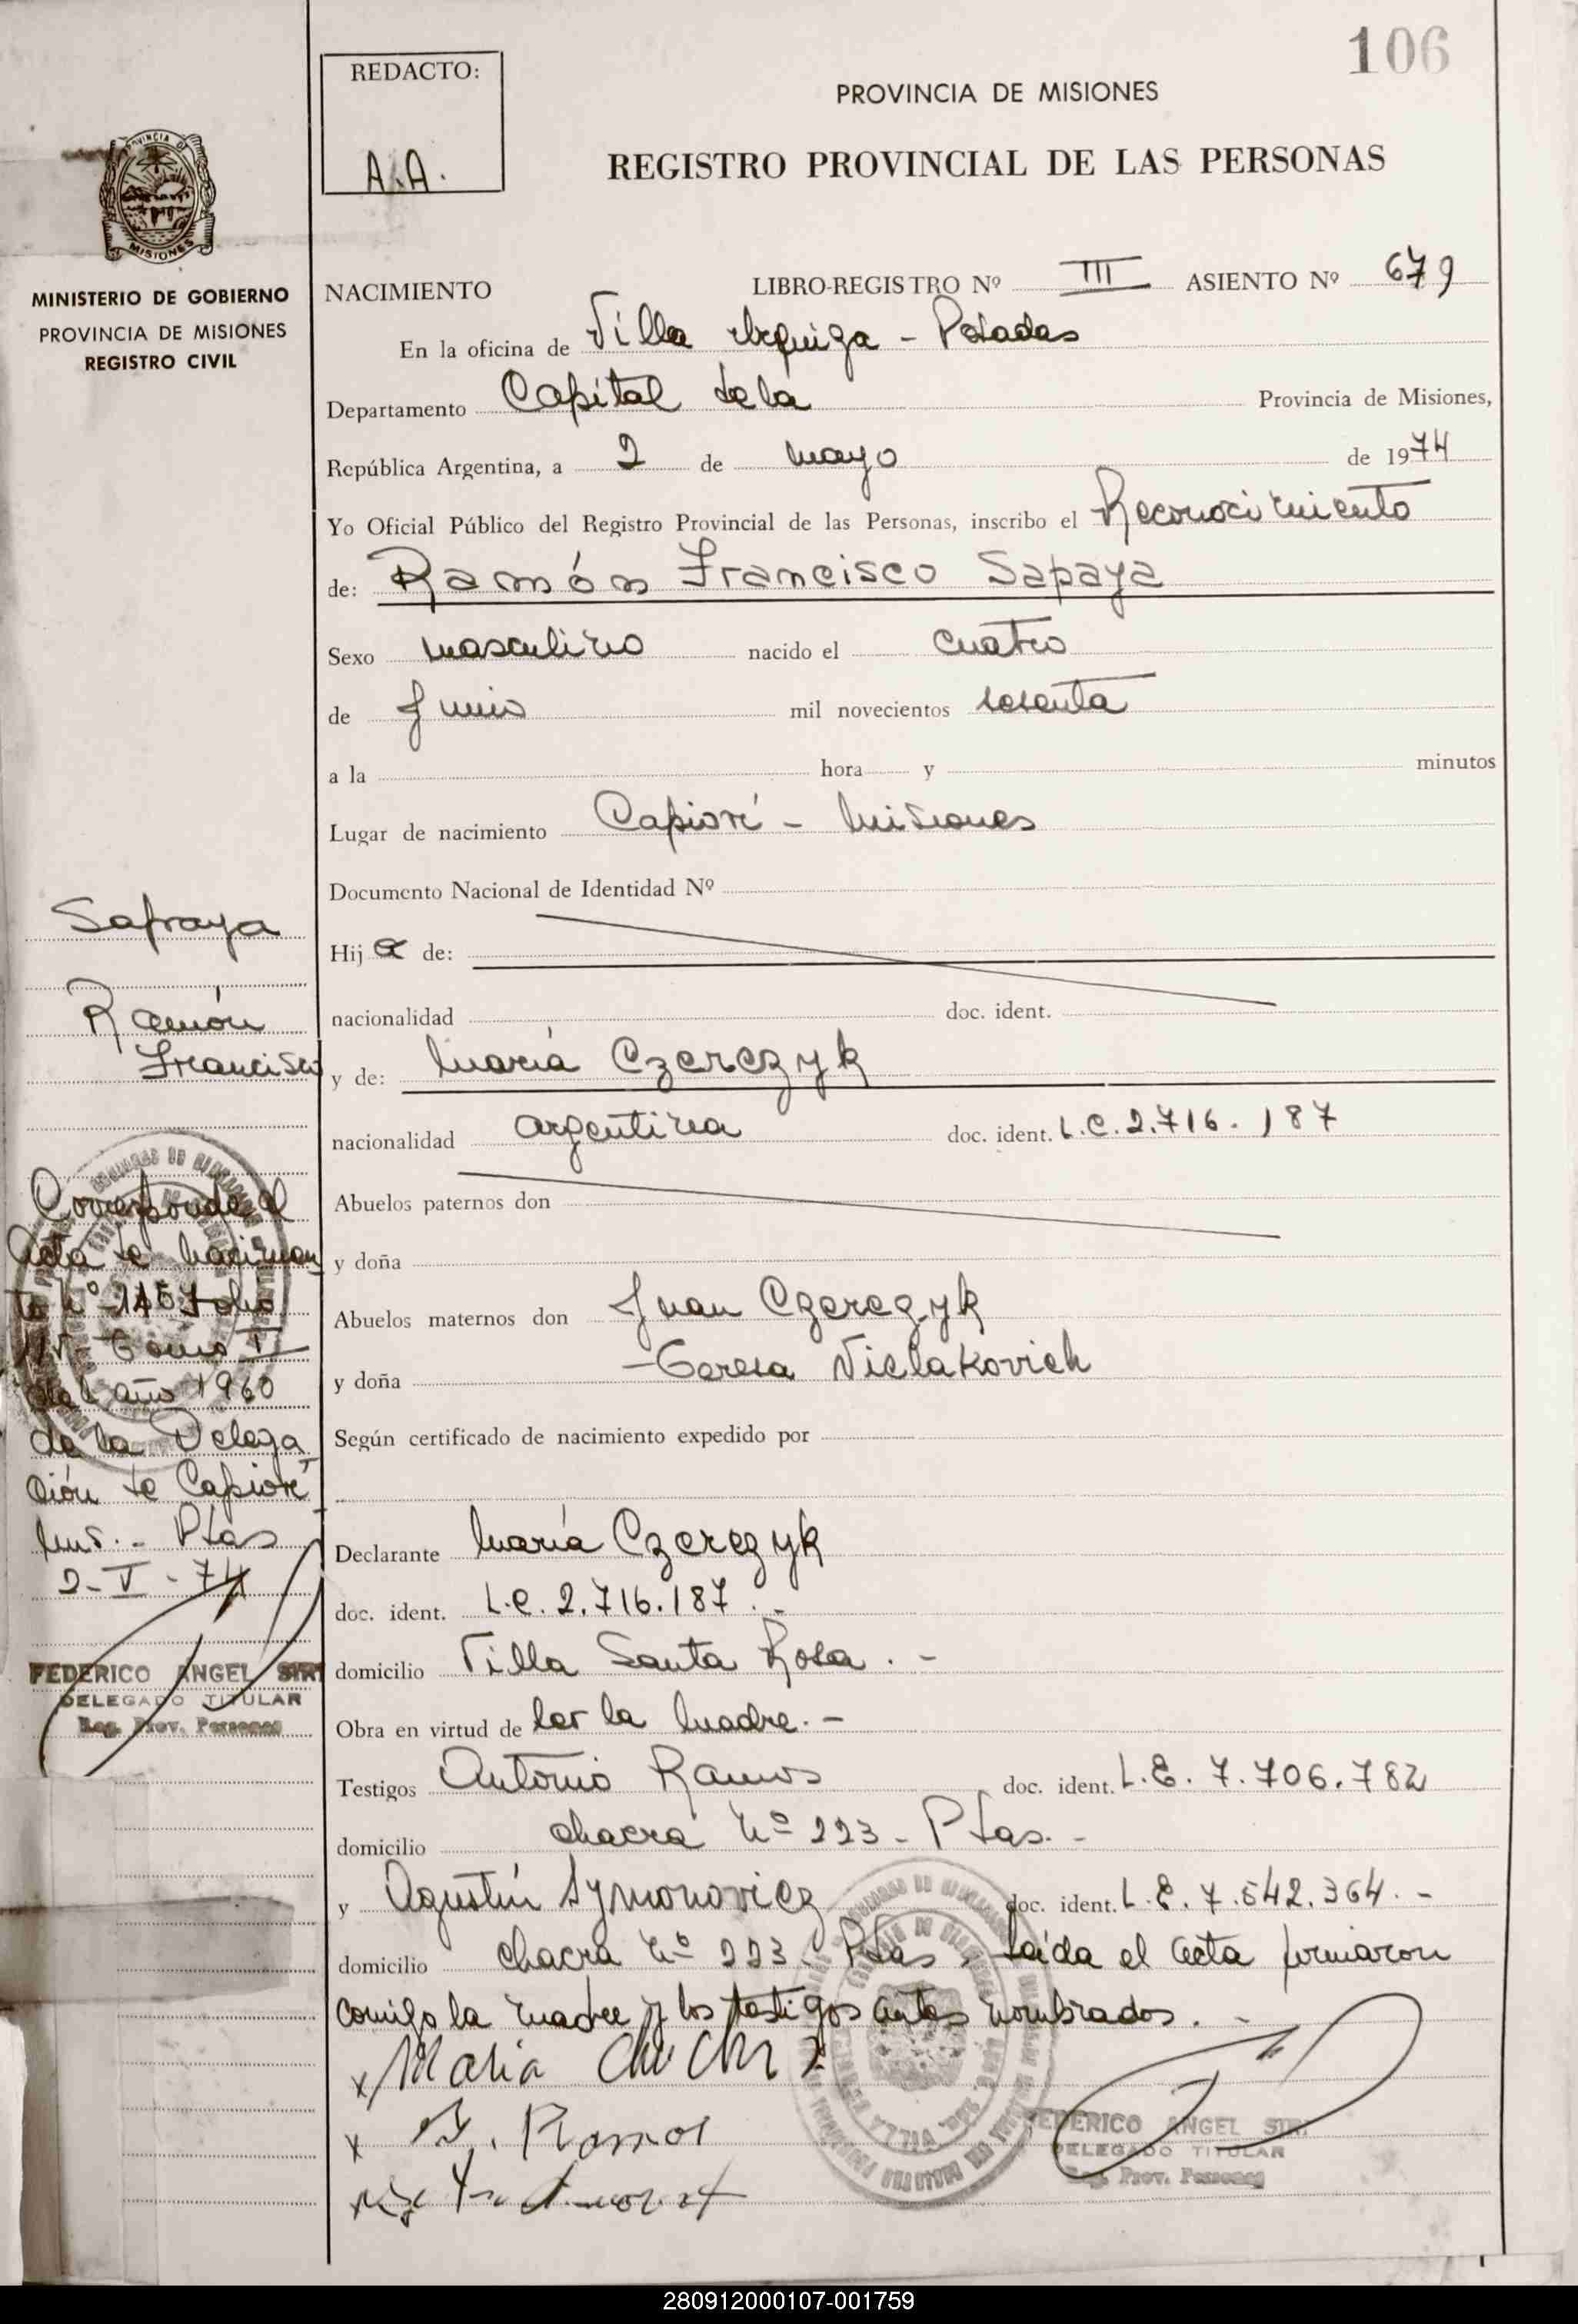 106
REDACTO:
A.A.
PROVINCIA DE MISIONES
REGISTRO PROVINCIAL DE LAS PERSONAS
MINISTERIO DE GOBIERNO
PROVINCIA DE MISIONES
REGISTRO CIVIL
NACIMIENTO LIBRO-REGISTRO Nº III ASIENTO Nº 679
En la oficina de Villa Urquiza - Posadas
Departamento Capital de la Provincia de Misiones,
República Argentina, a 2 de mayo de 1974
Yo Oficial Público del Registro Provincial de las Personas, inscribo el Reconocimiento
de: Ramón Francisco Sapaya
Sexo masculino nacido el cuatro
de Junio mil novecientos sesenta
a la hora y minutos
Lugar de nacimiento Capioví - Misiones
Documento Nacional de Identidad Nº
Hij de:
nacionalidad doc. ident.
y de: María Czerczyk
nacionalidad argentina doc. ident. L.C. 2.716.187
Abuelos paternos don
y doña
Abuelos maternos don Juan Czerczyk
y doña Teresa Vielakovich
Según certificado de nacimiento expedido por
Declarante María Czerczyk
doc. ident. L.C. 2.716.187.-
domicilio Villa Santa Rosa.-
Obra en virtud de ser la madre.-
Testigos Antonio Ramos doc. ident. L.E. 7.706.782
domicilio chacra Nº 223 - Ptas.-
y Agustín Symonovicz doc. ident. L.E. 7.542.364.-
domicilio chacra Nº 223 - Ptas. Leída el acta firmaron
comigo la madre y los testigos antes nombrados.-
x Maria
x Ramos
FEDERICO ANGEL SIRI
DELEGADO TITULAR
Reg. Prov. Personas
Ramón
Francisco
Corresponde al
Acta de nacimien
to Nº Folio
Tomo I
del año 1960
de la Delega
ción de Capioví
Mns.- Ptas
2-V-74
FEDERICO ANGEL SIRI
DELEGADO TITULAR
Reg. Prov. Personas
280912000107-001759